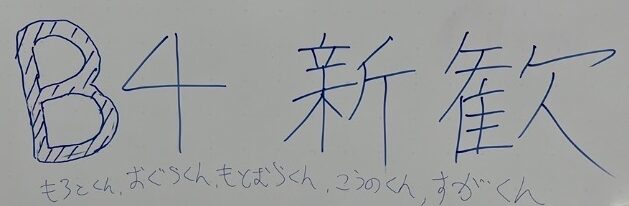 B4 新歓
もろこくん,おぐらくん,もとむらくん,こうのくん,すがくん